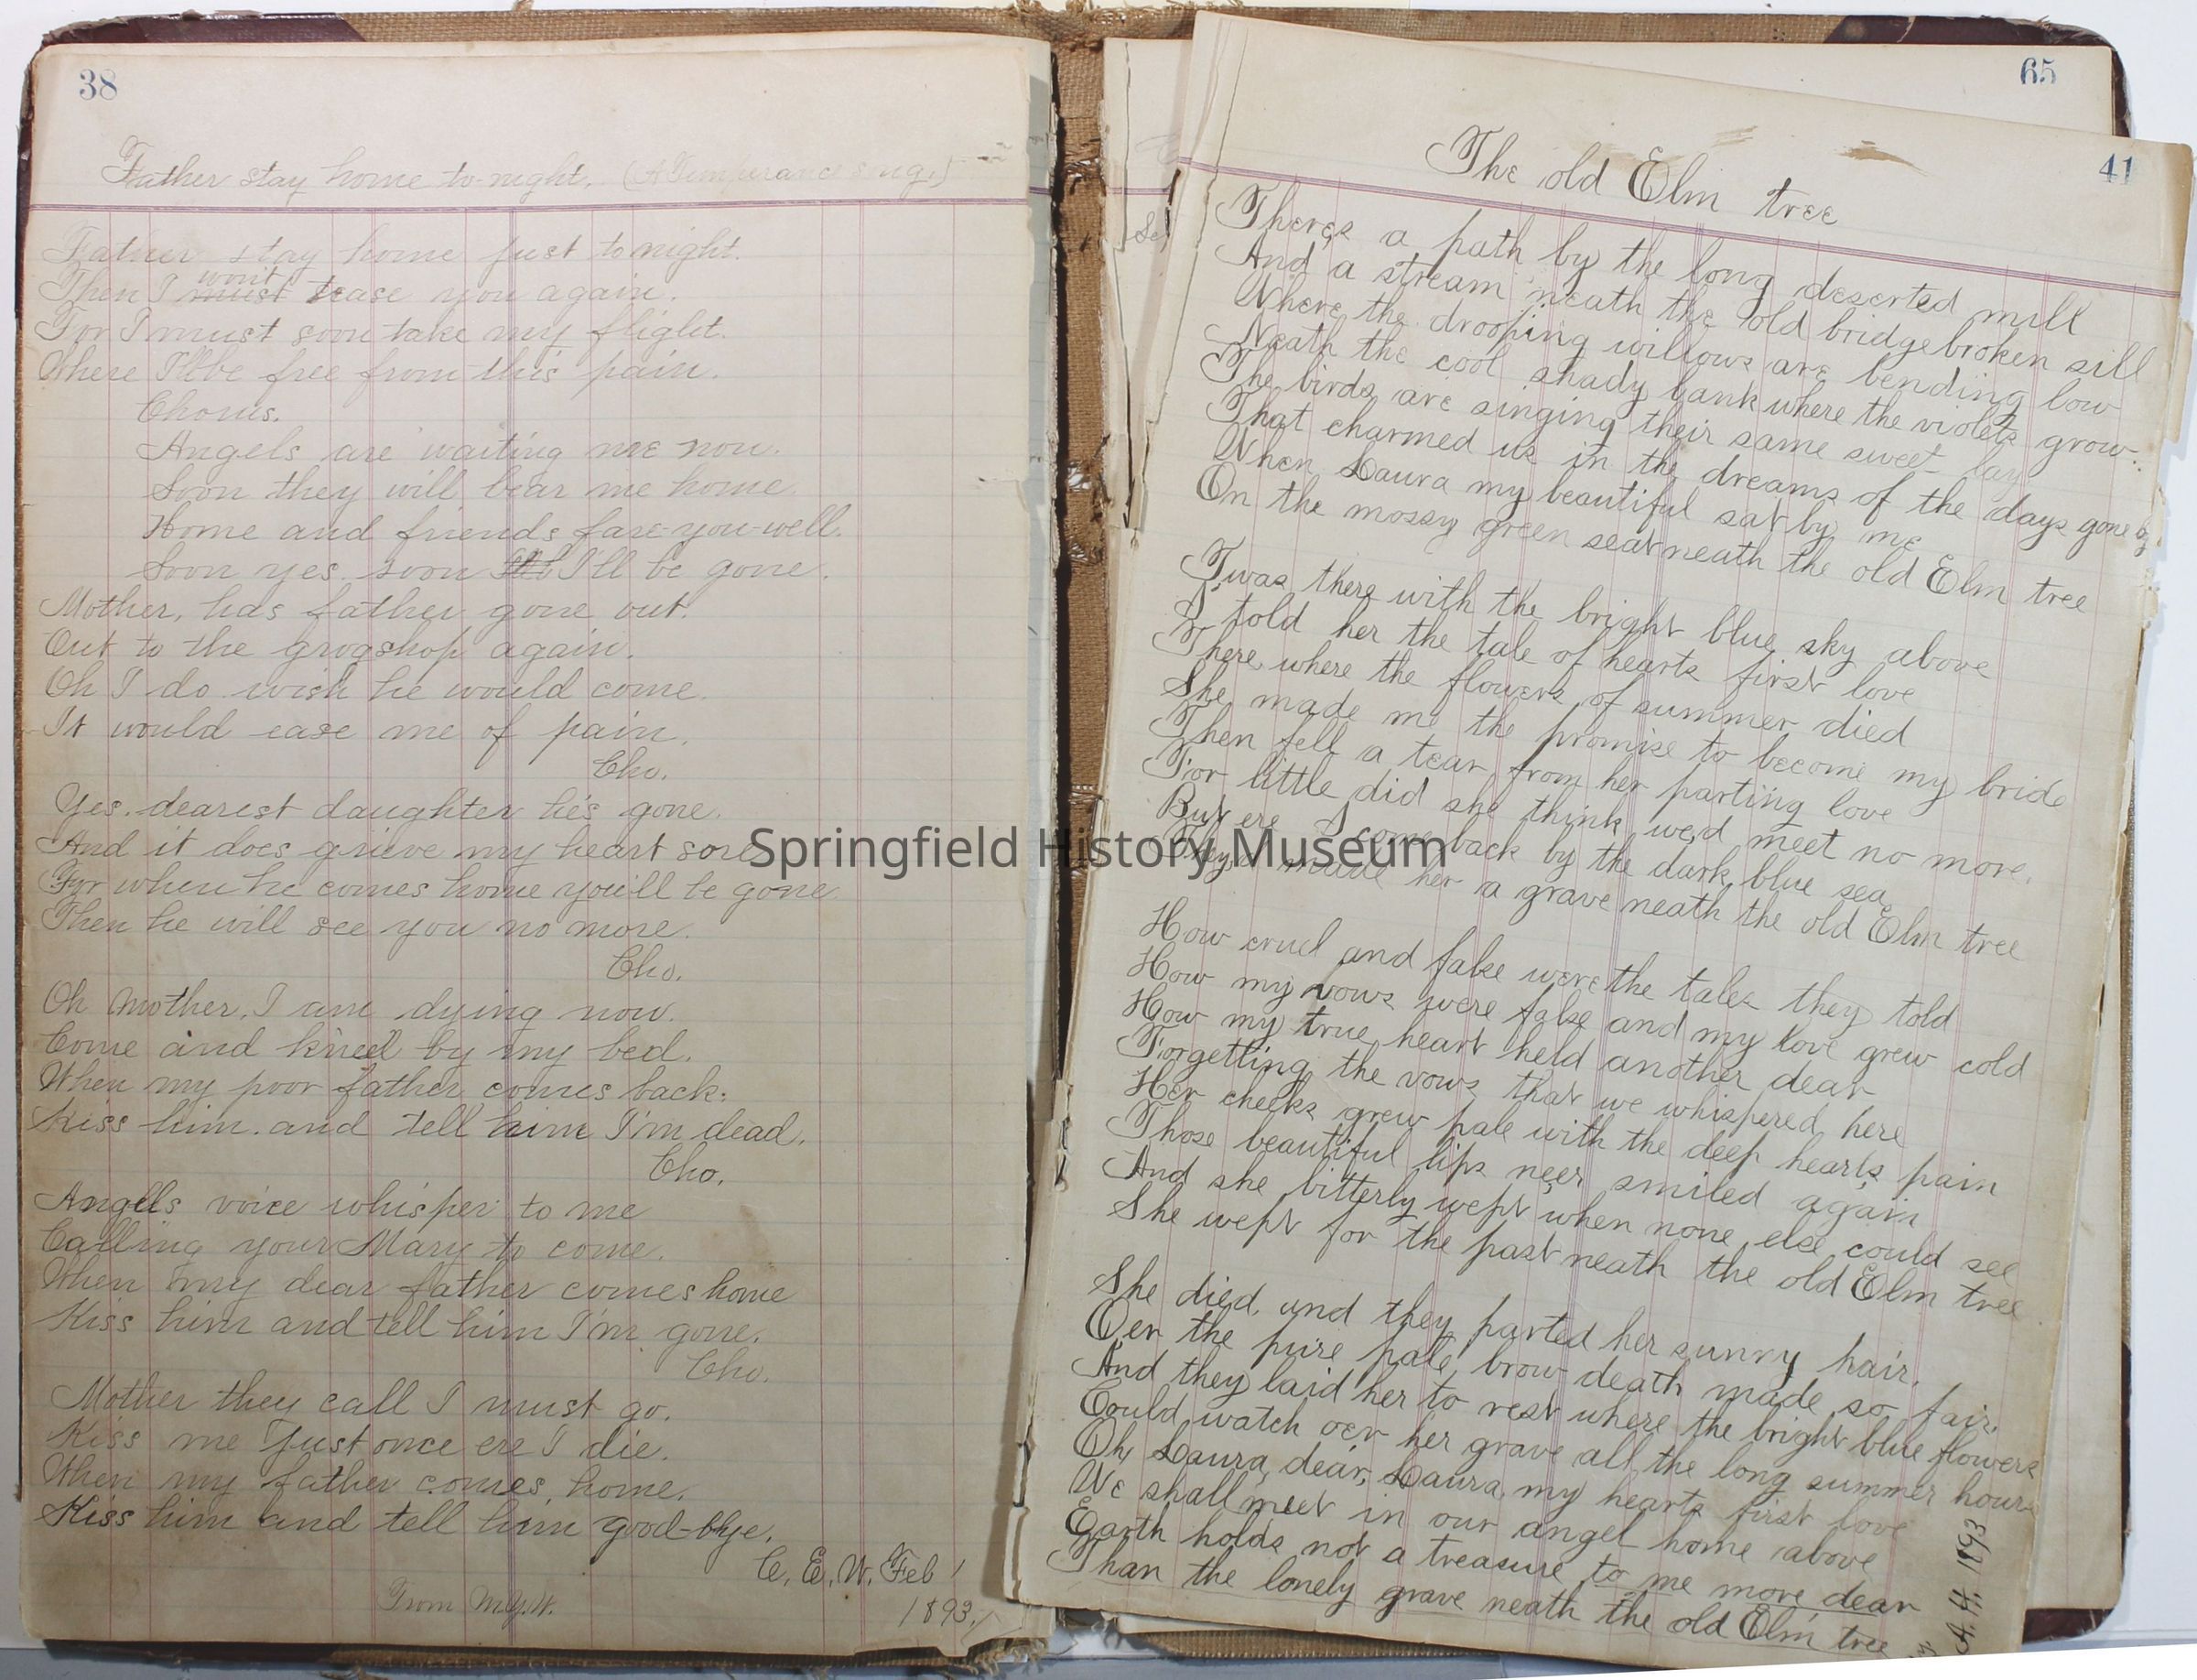 38
Father stay home to-night. (A Temperance song.)
Father stay home just to night.
Then I must won't tease you again.
For I must soon take my flight.
Where I'll be free from this pain.
Chorus.
Angels are waiting me now.
Soon they will bear me home
Home and friends fare-you-well.
Soon yes soon I'll be gone.
Mother, has father gone out.
Out to the grogshop again.
Oh I do wish he would come.
It would ease me of pain.
Cho.
Yes. dearest daughter he's gone.
And it does grieve my heart sore
For when he comes home you'll be gone
Then he will see you no more.
Cho.
Oh Mother, I am dying now.
Come and kneel by my bed.
When my poor father comes back.
Kiss him. and tell him I'm dead.
Cho.
Angels voice whisper to me
Calling your Mary to come.
When my dear father comes home
Kiss him and tell him I'm gone.
Cho.
Mother they call I must go.
Kiss me just once ere I die.
When my father comes home.
Kiss him and tell him good-bye.
C. E. W. Feb
1893.
From M.Y.W.
65
41
The old Elm tree
There's a path by the long deserted mill
And a stream neath the old bridge broken sill
Where the drooping willows are bending low
Neath the cool shady bank where the violets grow.
The birds are singing their same sweet lay
That charmed us in the dreams of the days gone by
When Laura my beautiful sat by me
On the mossy green seat neath the old Elm tree
Twas there with the bright blue sky above
I told her the tale of hearts first love
There where the flowers of summer died
She made me the promise to become my bride
Then fell a tear from her parting love
For little did she think we'd meet no more.
But ere I come back by the dark blue sea
They made her a grave neath the old Elm tree
How cruel and false were the tales they told
How my vows were false and my love grew cold
How my true heart held another dear
Forgetting the vows that we whispered here
Her cheeks grew pale with the deep heart's pain
Those beautiful lips neer smiled again
And she bitterly wept when none else could see
She wept for the past neath the old Elm tree
She died and they parted her sunny hair.
Oer the pure pale brow death made so fair.
And they laid her to rest where the bright blue flowers
Could watch oer her grave all the long summer hours
Oh, Laura, dear, Laura my hearts first love
We shall meet in our angel home above
Earth holds not a treasure to me more dear
Than the lonely grave neath the old Elm tree
A. H. 1893
Springfield History Museum